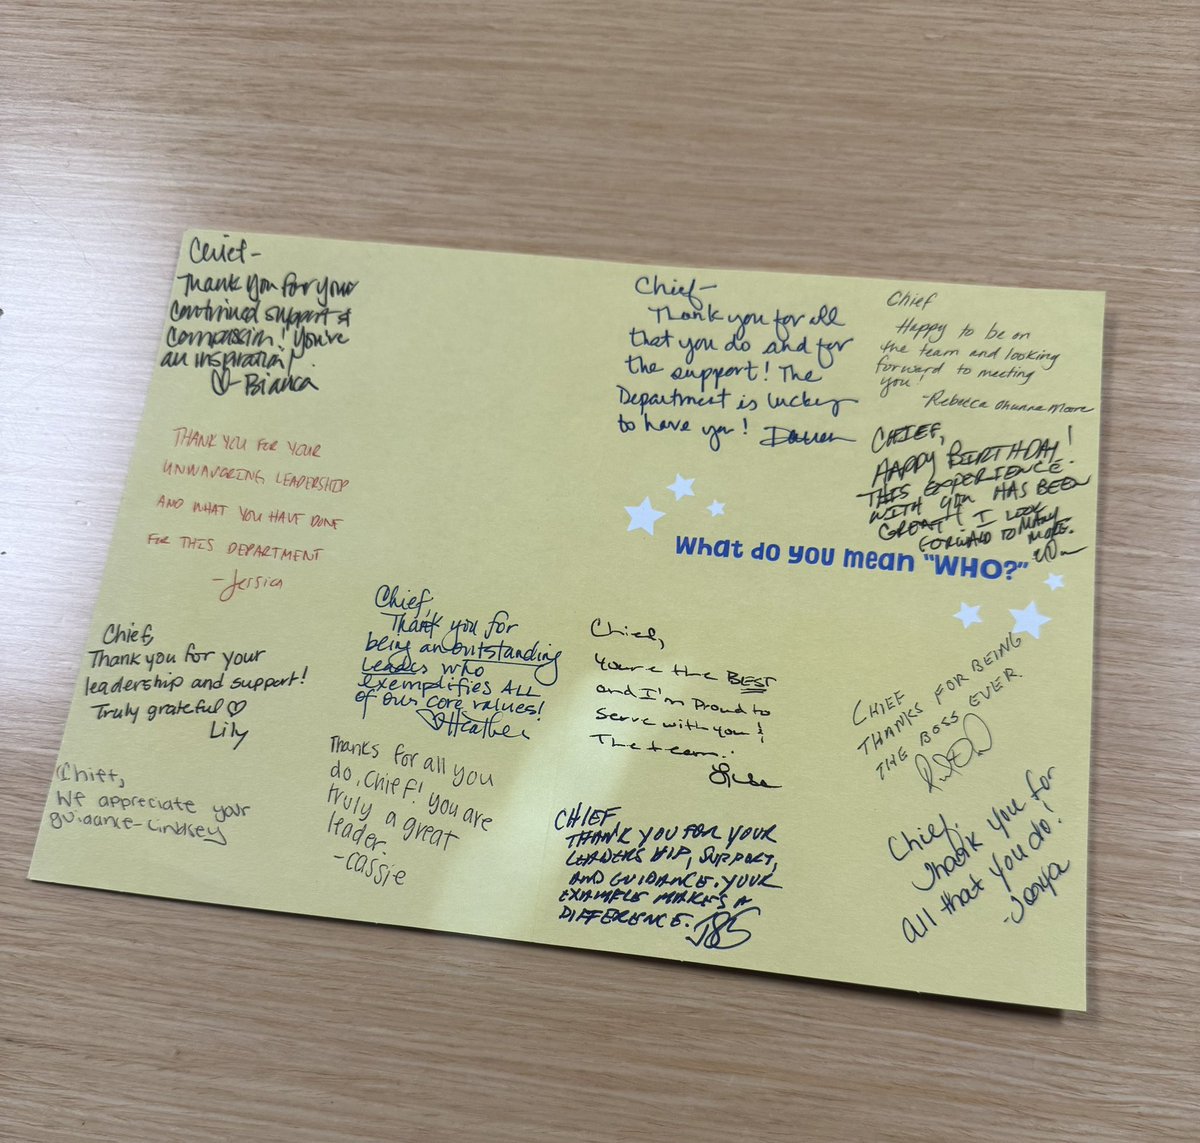 Chief-
Thank you for your
continued support &
compassion! You're
an inspiration!
♡- Bianca
THANK YOU FOR YOUR
UNWAVORING LEADERSHIP
AND WHAT YOU HAVE DONE
FOR THIS DEPARTMENT
-Jessica
Chief,
Thank you for your
leadership and support!
Truly grateful ♡
Lily
Chief,
We appreciate your
guidance-Lindsey
Chief,
Thank you for
being an outstanding
Leader who
exemplifies ALL
of our core values!
♡Heather
Thanks for all you
do, Chief! You are
truly a great
leader.
-Cassie
Chief-
Thank you for all
that you do and for
the support! The
Department is lucky
to have you!
Chief
Happy to be on
the team and looking
forward to meeting
you!
-Rebecca Moore
CHIEF,
HAPPY BIRTHDAY!
THIS EXPERIENCE
WITH YOU HAS BEEN
GREAT! I LOOK
FORWARD TO MANY
MORE.
What do you mean "WHO?"
Chief,
You're the BEST
and I'm proud to
serve with you!
The team!
CHIEF
THANKS FOR BEING
THE BOSS EVER.
CHIEF
THANK YOU FOR YOUR
LEADERSHIP, SUPPORT,
AND GUIDANCE. YOUR
EXAMPLE MAKES A
DIFFERENCE.
Chief,
Thank you for
all that you do!
-Tonya